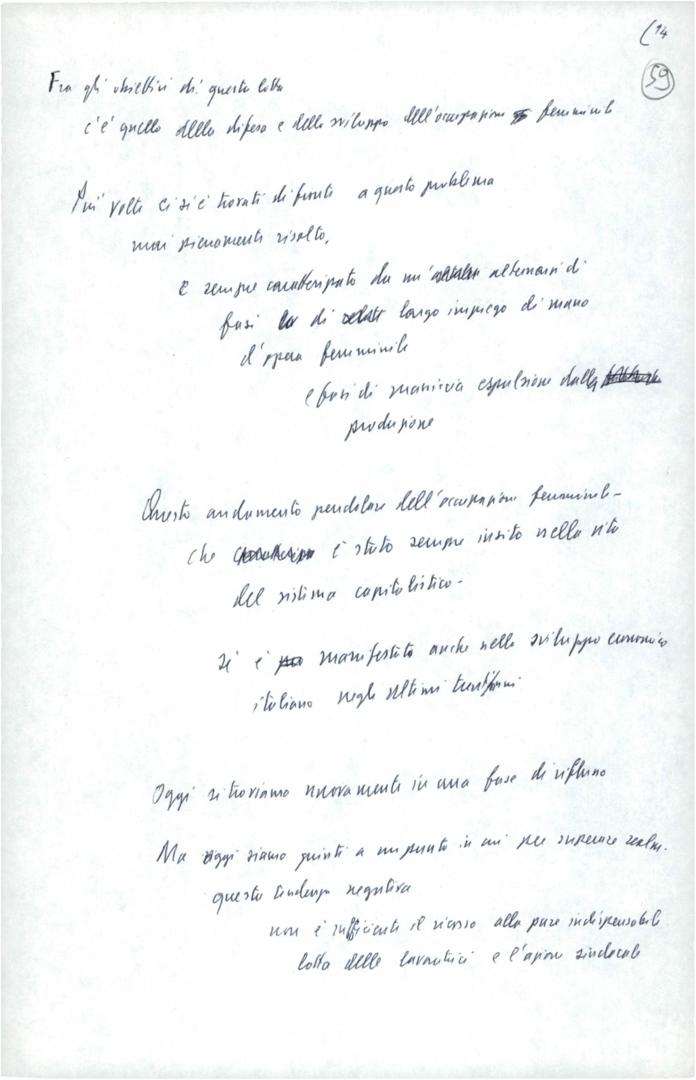 14
59
Fra gli obiettivi di questa lotta
c'è quello della difesa e dello sviluppo dell'occupazione femminile
Più volte ci si è trovati di fronte a questo problema
mai pienamente risolto,
e sempre caratterizzato da un' alternarsi di
fasi di largo impiego di mano
d'opera femminile
e fasi di massiccia espulsione dalla
produzione
Questo andamento pendolare dell'occupazione femminile -
che è stato sempre insito nella vita
del sistema capitalistico -
si è manifestato anche nello sviluppo economico
italiano negli ultimi trent'anni
Oggi ci troviamo nuovamente in una fase di riflusso
Ma oggi siamo giunti a un punto in cui per superare realm.
questa tendenza negativa
non è sufficiente il ricorso alla pure indispensabile
lotta delle lavoratrici e l'azione sindacale